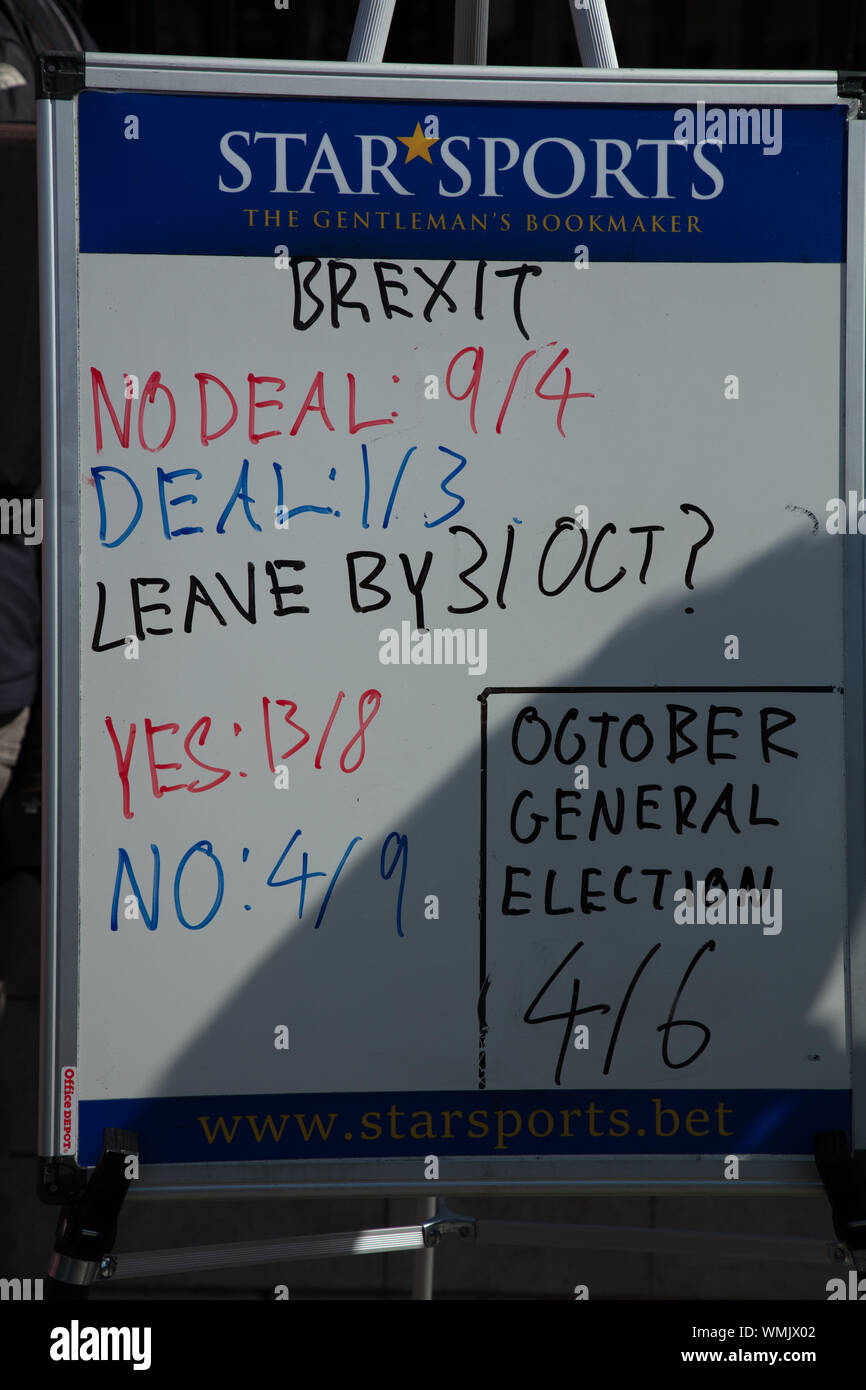 STAR★SPORTS
THE GENTLEMAN'S BOOKMAKER
BREXIT
NO DEAL: 9/4
DEAL: 1/3
LEAVE BY 31 OCT?
YES: 13/8
NO: 4/9
OCTOBER
GENERAL
ELECTION
4/6
Office DEPOT
www.starsports.bet
alamy
a
alamy
Image ID: WMJX02
www.alamy.com